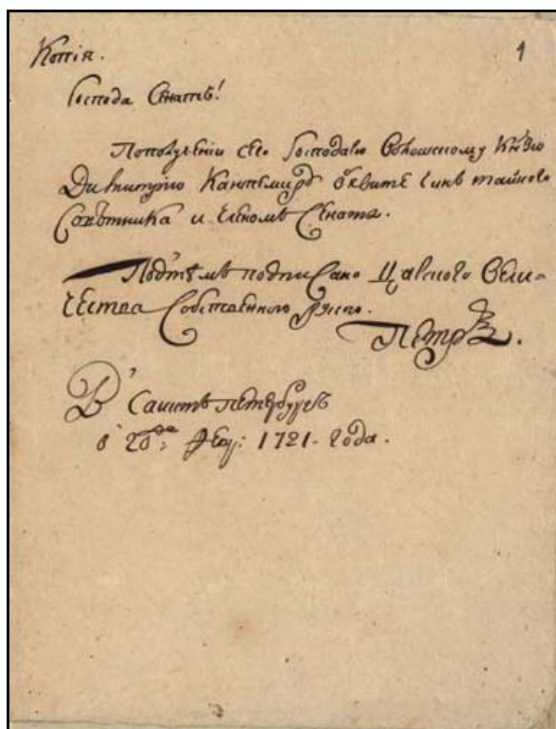 Копия.
1
Господа Сенатъ!
По получении сего Господарю Волошскому Князю
Димитрию Кантемиру чинъ тайного
Совѣтника и членомъ Сената.
Подтѣмъ подписано Царского Вели-
чества Собственною рукою.
Петръ.
В Санктъ петербурхѣ
февр: 1721. Года.